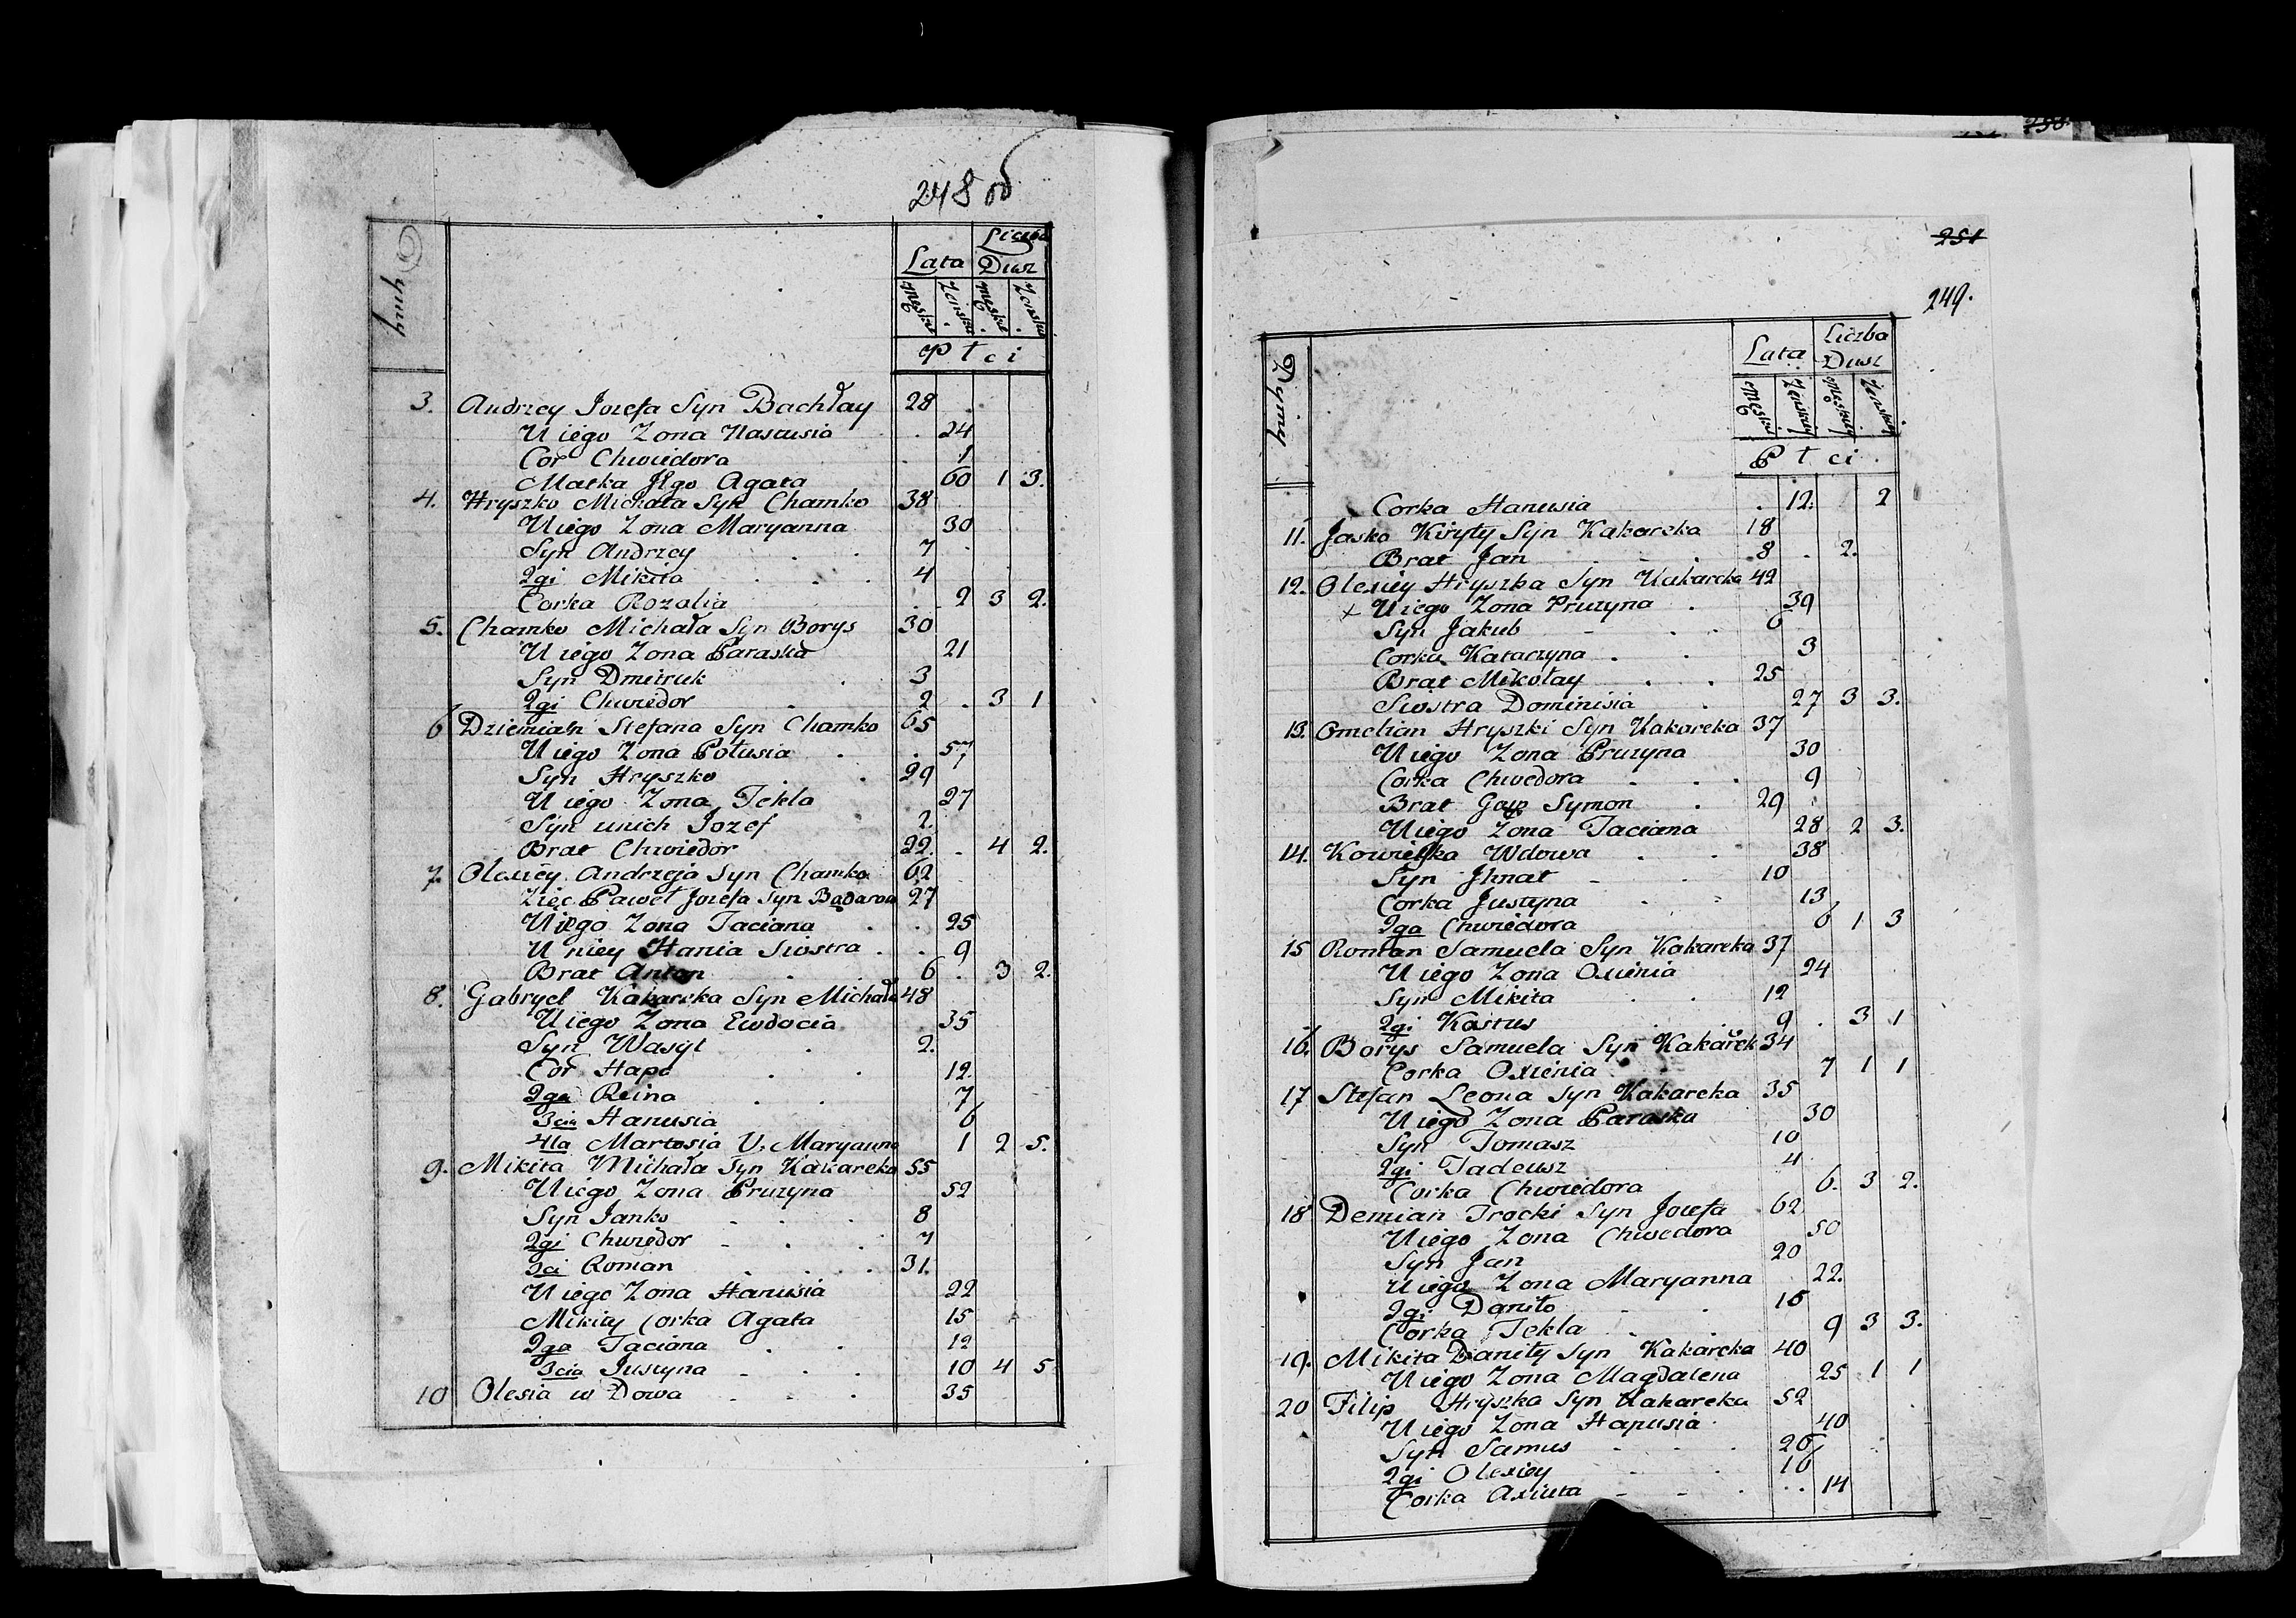 248 od
Dymy
Lata
Liczba
Dusz
Męskiey Zenskiey Męskiey Zenskiey
Płci
3. Andrzey Jozefa Syn Bachłay 28
U iego Zona Nastusia 24
Cor Chwiedora 1
Matka Jego Agata 60 1 3.
4. Hryszko Michała Syn Chamko 38
U iego Zona Maryanna 30
Syn Andrzey 7
2gi Mikita 4
Corka Rozalia 2 3 2.
5. Chamko Michała Syn Borys 30
U iego Zona Paraska 21
Syn Dmitruk 3
2gi Chwiedor 2 3 1
6 Dziemian Stefana Syn Chamko 65
U iego Zona Połusia 57
Syn Hryszko 29
U iego Zona Tekla 27
Syn unich Jozef 2.
Brat Chwiedor 22. 4 2.
7. Olexiey Andrzeja Syn Chamko 62
Zięc Paweł Jozefa Syn Badarna 27
U iego Zona Taciana 25
U niey Hania Siostra 9
Brat Anton 6 3 2.
8. Gabryel Kakareka Syn Michała 48
U iego Zona Ewdocia 35
Syn Wasyl 2.
Cor Hapa 12.
2ga Reina 7
3cia Hanusia 6
4ta Martosia V. Maryanna 1 2 5.
9. Mikita Michała Syn Kakareka 55
U iego Zona Pruzyna 52
Syn Janko 8
2gi Chwiedor 7
3ci Roman 31.
U iego Zona Hanusia 22
Mikity Corka Agata 15
2ga Taciana 12
3cia Justyna 10 4 5
10 Olesia w Dowa 35
251
249.
Dymy
Lata
Liczba
Dusz
Męskiey Zenskiey Męskiey Zenskiey
Płci
Corka Hanusia 12. 2
11. Jasko Kiryły Syn Kakareka 18
Brat Jan 8 2.
12. Olexiey Hryszka Syn Kakareka 42
x U iego Zona Pruzyna 39
Syn Jakub 6
Corka Katarzyna 3
Brat Mikołay 25
Siostra Dominisia 27 3 3.
13. Omelian Hryszki Syn Kakareka 37
U iego Zona Pruzyna 30
Corka Chwedora 9
Brat Symon 29
U iego Zona Taciana 28 2 3.
14. Wdowa 38
Syn Jhnat 10
Corka Justyna 13
2ga Chwiedora 6 1 3
15 Roman Samuela Syn Kakareka 37
U iego Zona Oxienia 24
Syn Mikita 12
2gi Kastus 9 3 1
16. Borys Samuela Syn Kakarek 34
Corka Oxienia 7 1 1
17 Stefan Leona Syn Kakareka 35
U iego Zona Paraska 30
Syn Tomasz 10
2gi Tadeusz 4
Corka Chwiedora 6. 3 2.
18 Demian Trocki Syn Jozefa 62
U iego Zona Chwedora 50
Syn Jan 20
U iego Zona Maryanna 22.
2gi Daniło 15
Corka Tekla 9 3 3.
19. Mikita Daniły Syn Kakareka 40
U iego Zona Magdalena 25 1 1
20 Filip Hryszka Syn Kakareka 52
U iego Zona Hapusia 40
Syn Samus 26
2gi Olexiey 16
Corka Axiuta 14